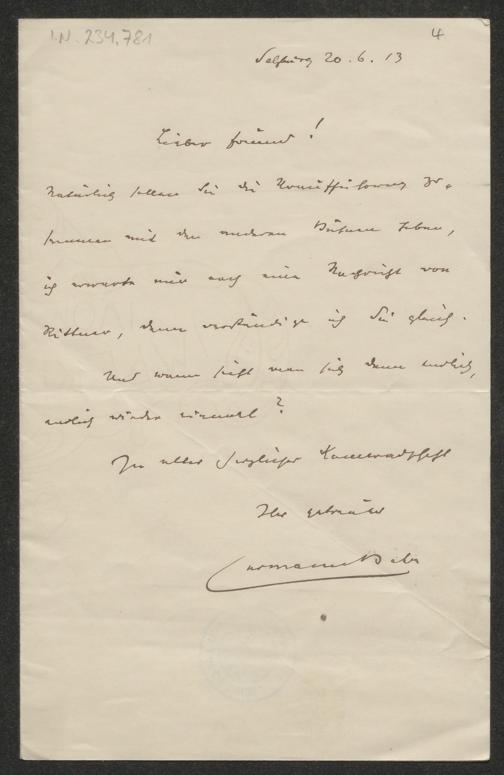 I.N. 234.781
4
Salzburg 20.6.13
Lieber Freund!
Natürlich sollen Sie die Uraufführung zu-
sammen mit den anderen Bühnen haben,
ich erwarte nur noch eine Nachricht von
Rittner, dann verständige ich Sie gleich.
Und wann sieht man sich denn endlich,
endlich wieder einmal?
In alter herzlicher Kameradschaft
Ihr getreuer
Hermann Bahr